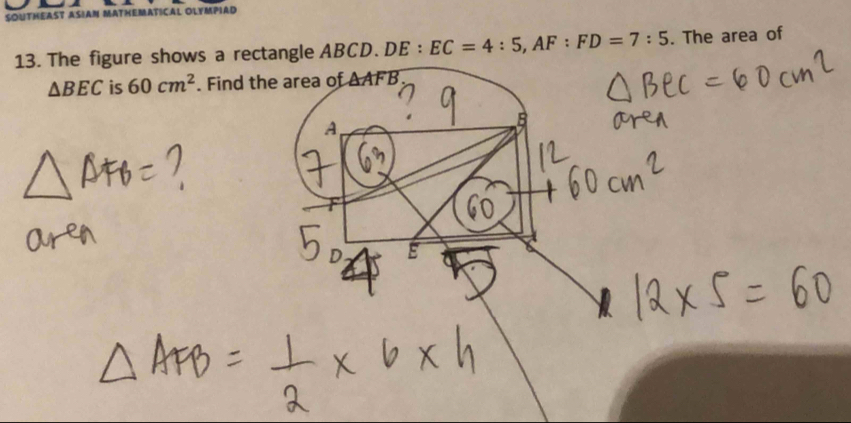 SOUTHEAST ASIAN MATHEMATICAL OLYMPIAD
13. The figure shows a rectangle ABCD. DE : EC = 4 : 5, AF : FD = 7 : 5. The area of
ΔBEC is 60 cm². Find the area of ΔAFB.
Δ BEC = 60 cm²
area
? 9
A
B
7
63
12
Δ AFB = ?
area
60
60 cm²
F
5
D
E
4
5
12 x 5 = 60
Δ AFB = 1/2 x b x h